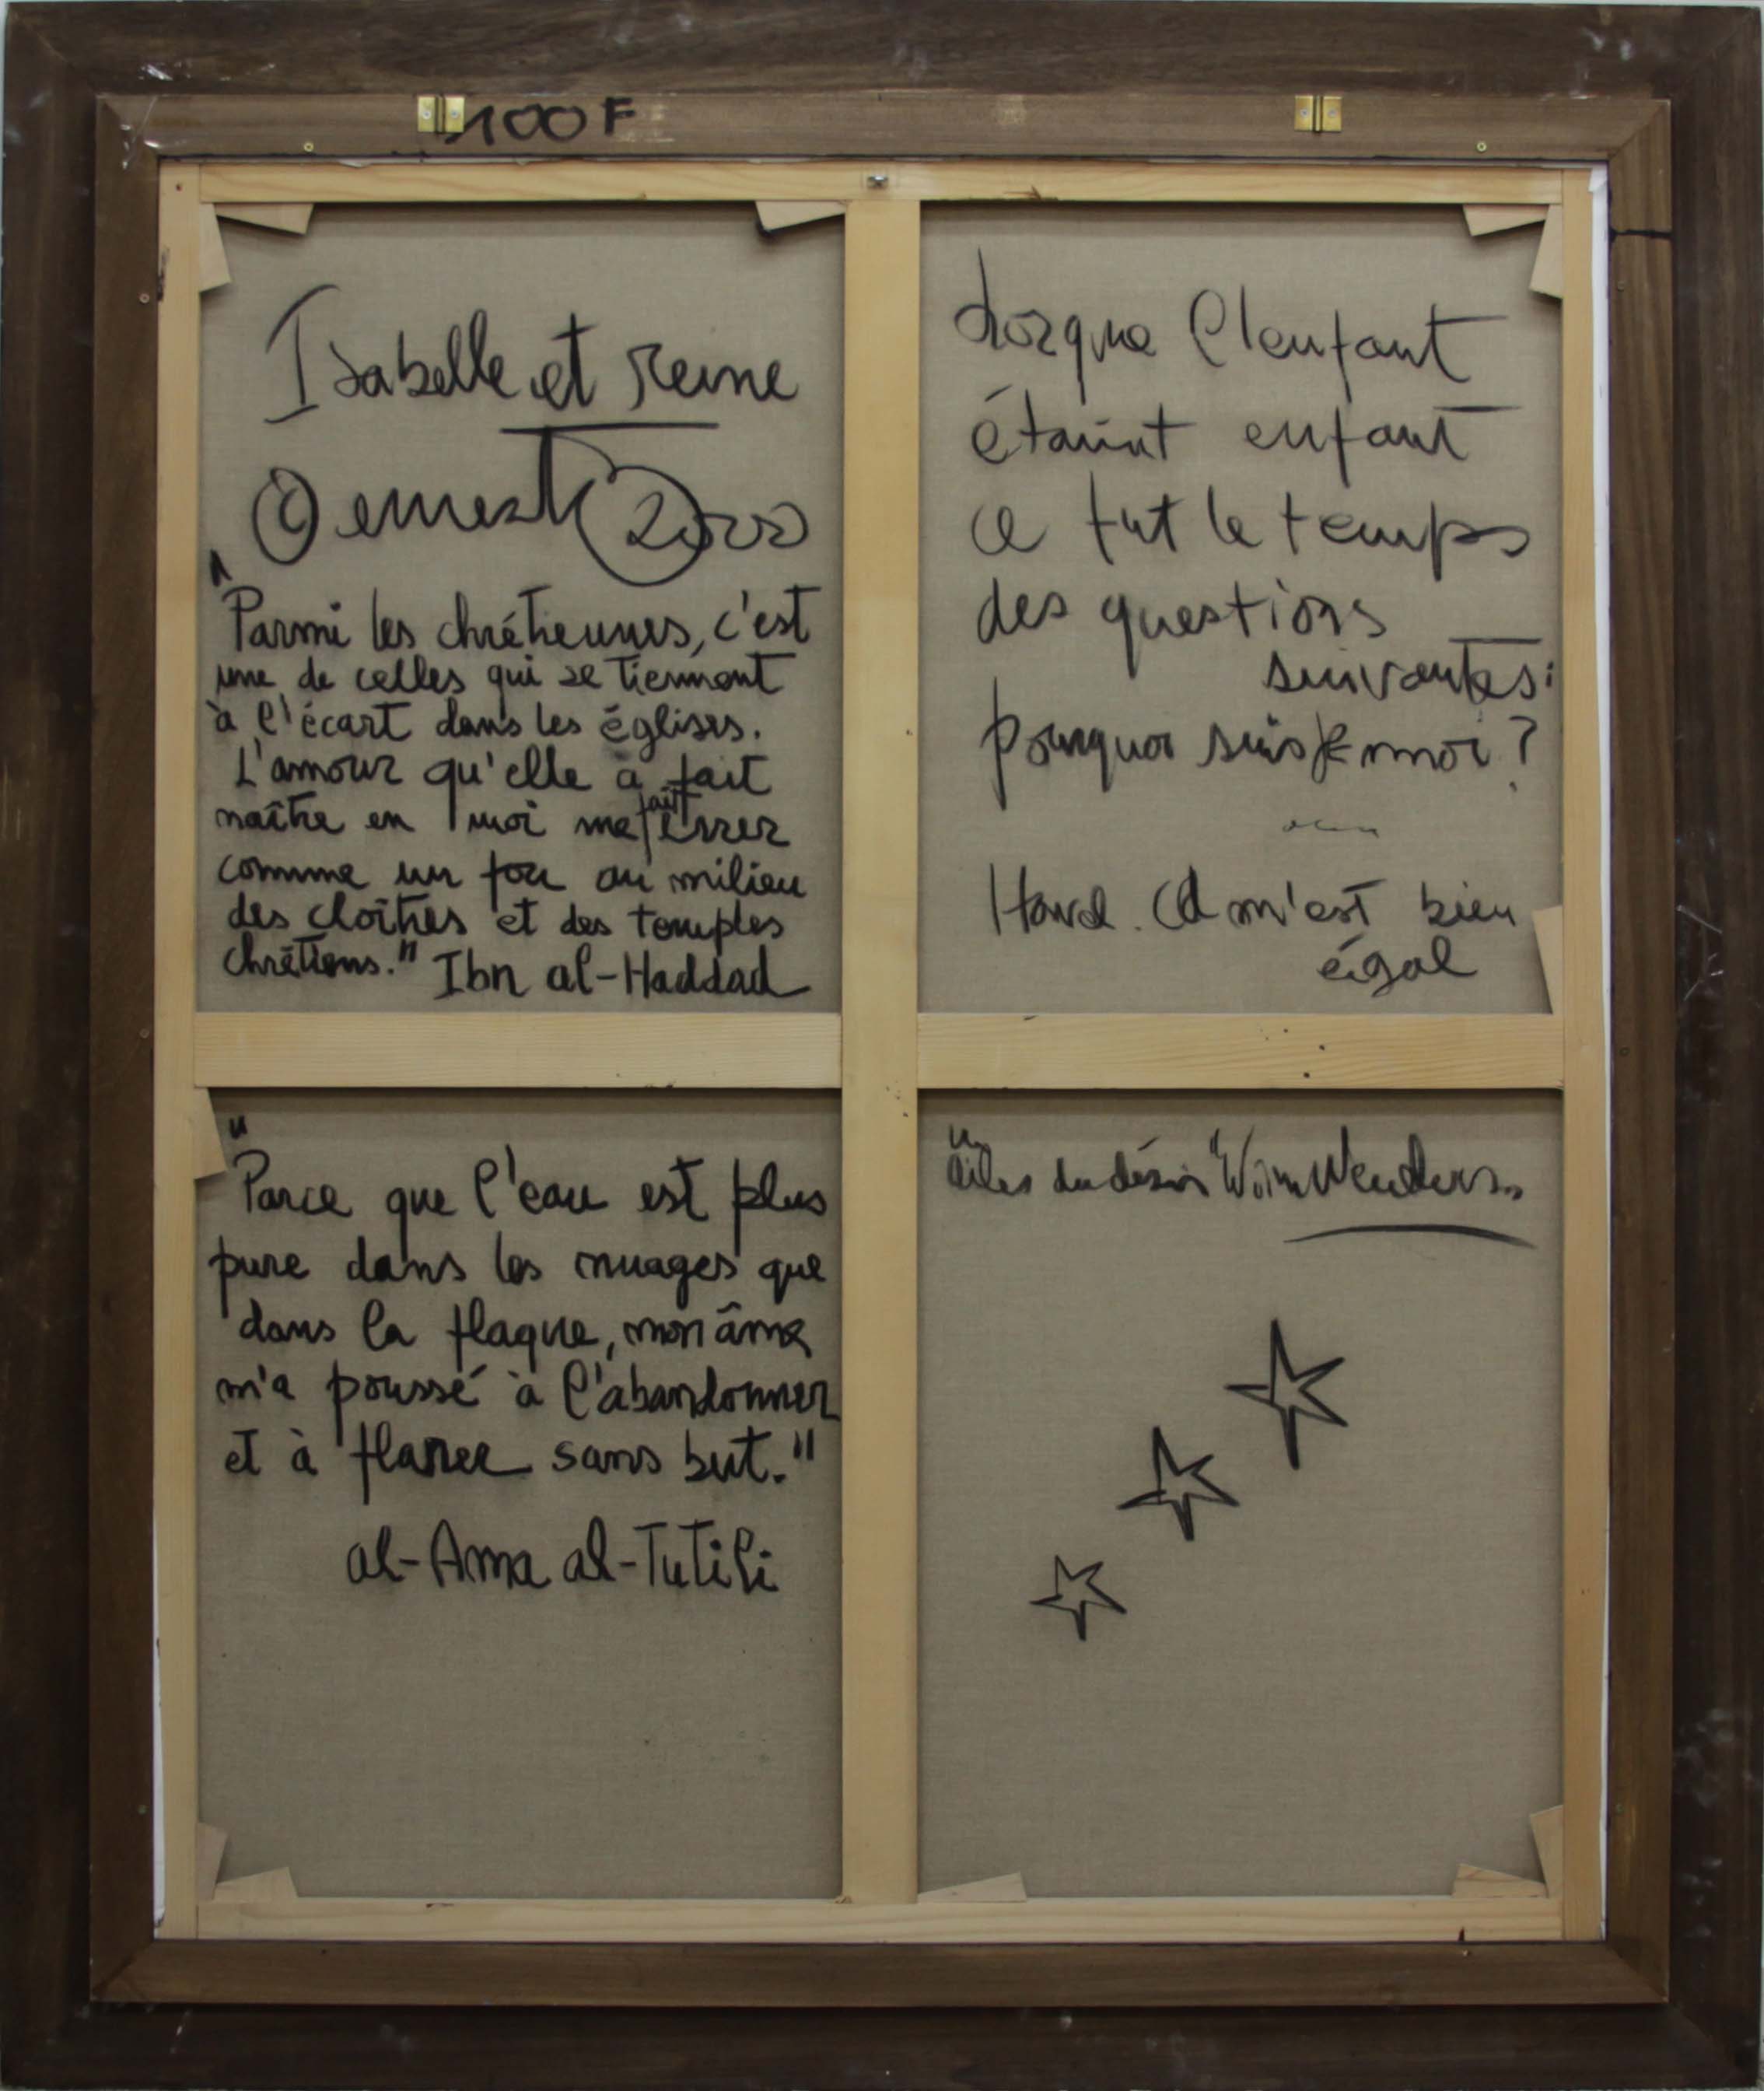 100F
Isabelle et reine
2000
"Parmi les chrétiennes, c'est
une de celles qui se tiennent
à l'écart dans les églises.
L'amour qu'elle a fait
naître en moi me fait errer
comme un fou au milieu
des cloîtres et des temples
chrétiens." Ibn al-Haddad
"Parce que l'eau est plus
pure dans les nuages que
dans la flaque, mon âme
m'a poussé à l'abandonner
et à flaner sans but."
al-Ama al-Tutili
Lorque l'enfant
étaint enfant
ce fut le temps
des questions
suivantes:
pourquoi suis je moi?
m'est bien
égal
"Ailes du désir" Wim Wenders